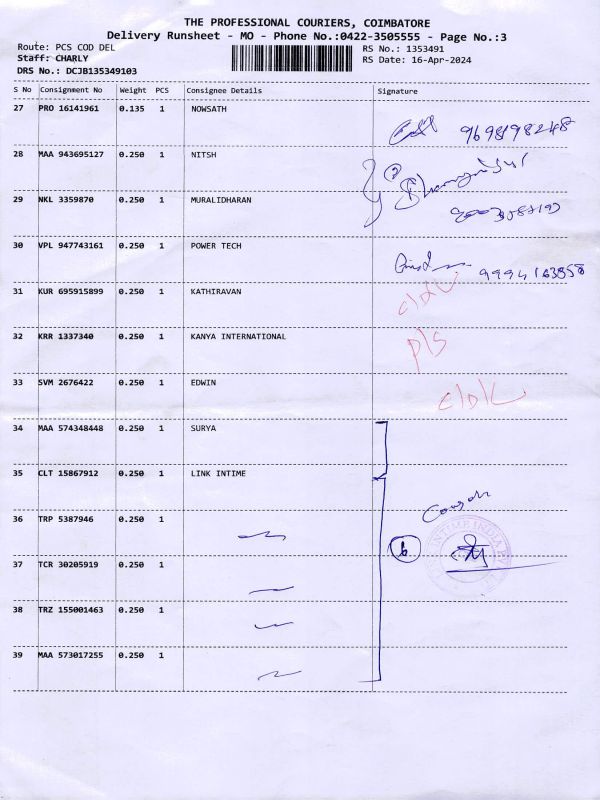 THE PROFESSIONAL COURIERS, COIMBATORE
Delivery Runsheet - MO - Phone No.:0422-3505555 - Page No.:3
Route: PCS COD DEL
RS No.: 1353491
Staff: CHARLY
RS Date: 16-Apr-2024
DRS No.: DCJB135349103
S No Consignment No Weight PCS Consignee Details Signature
27 PRO 16141961 0.135 1 NOWSATH
9698198248
28 MAA 943695127 0.250 1 NITSH
29 NKL 3359870 0.250 1 MURALIDHARAN
30 VPL 947743161 0.250 1 POWER TECH
9994163858
31 KUR 695915899 0.250 1 KATHIRAVAN
32 KRR 1337340 0.250 1 KANYA INTERNATIONAL
33 SVM 2676422 0.250 1 EDWIN
34 MAA 574348448 0.250 1 SURYA
35 CLT 15867912 0.250 1 LINK INTIME
36 TRP 5387946 0.250 1
6
37 TCR 30205919 0.250 1
38 TRZ 155001463 0.250 1
39 MAA 573017255 0.250 1